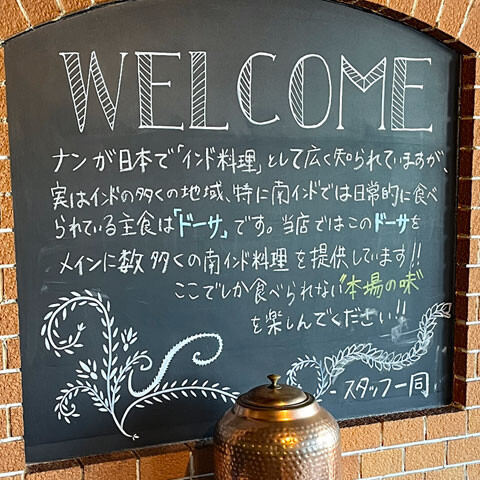 WELCOME
ナンが日本で「インド料理」として広く知られていますが、
実はインドの多くの地域、特に南インドでは日常的に食べ
られている主食は「ドーサ」です。当店ではこのドーサを
メインに数多くの南インド料理を提供しています!!
ここでしか食べられない"本場の味"
を楽しんでください!!
-スタッフ一同.